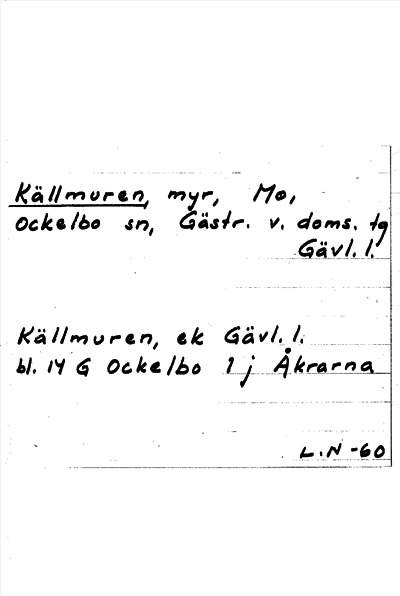 Källmuren, myr, Mo,
Ockelbo sn, Gästr. v. doms. tg
Gävl. l.
Källmuren, ek Gävl. l.
bl. 14 G Ockelbo 1 j Åkrarna
L.N -60